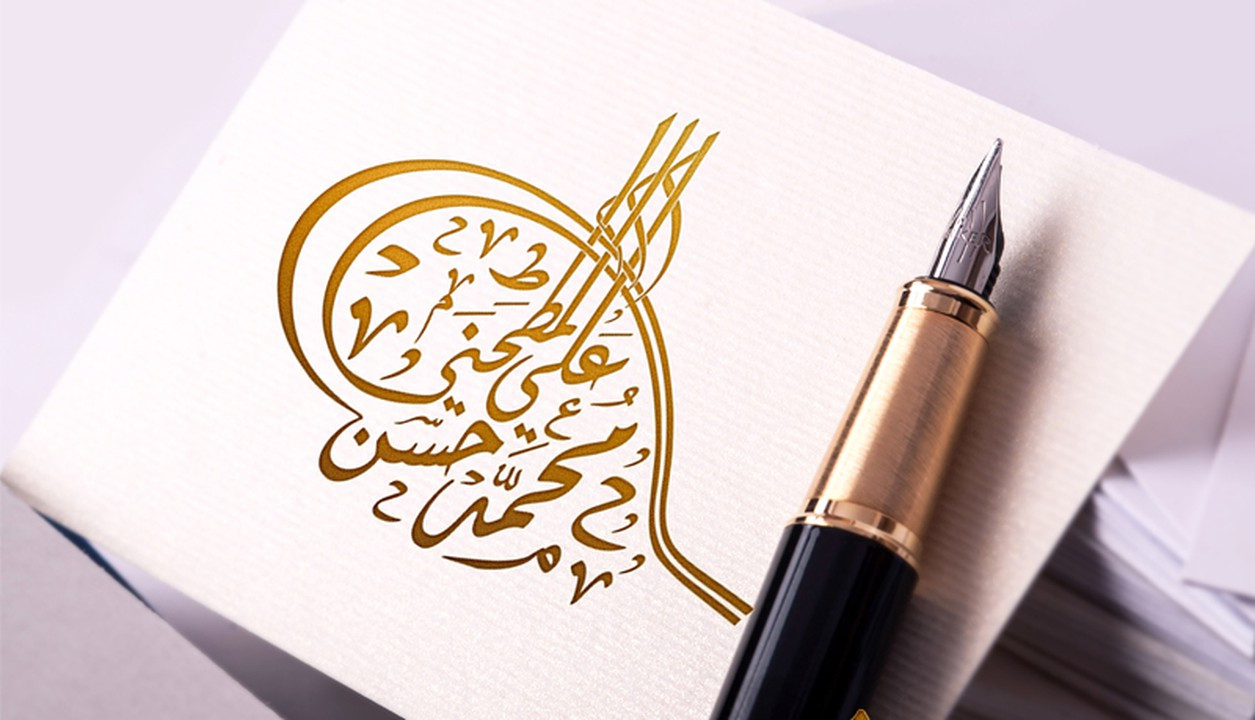 محمد حسن
علي المطحني